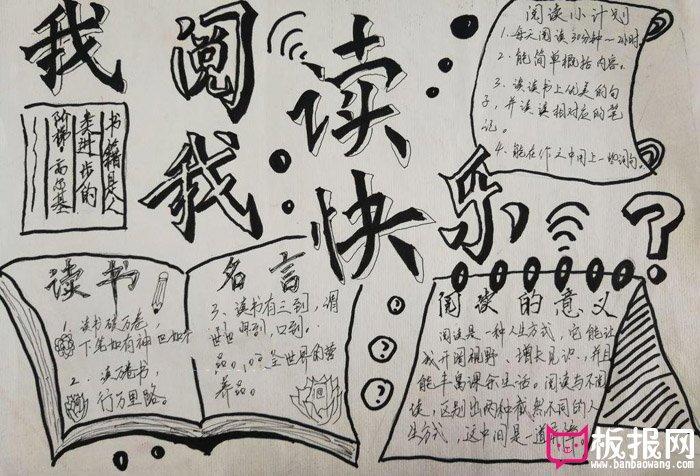 我阅读
我快乐
书籍是人
类进步的
阶梯 高尔基
阅读小计划
1.每天阅读30分钟~2小时
2.能简单概括内容。
3.读读书上优美的句
子,并读读相对应的笔
记。
4.能在作文中用上一些词句。
读书
1.读书破万卷,
下笔如有神
2.读万卷书,
行万里路。
名言
3.读书有三到,谓
到,口到。
全世界的营
养品。
阅读的意义
阅读是一种人生方式,它能让
我开阔视野、增长见识、并且
能丰富课余生活。阅读与不阅
读,区别出两种截然不同的人
生方式,这中间是一道
板报网
www.banbaowang.com